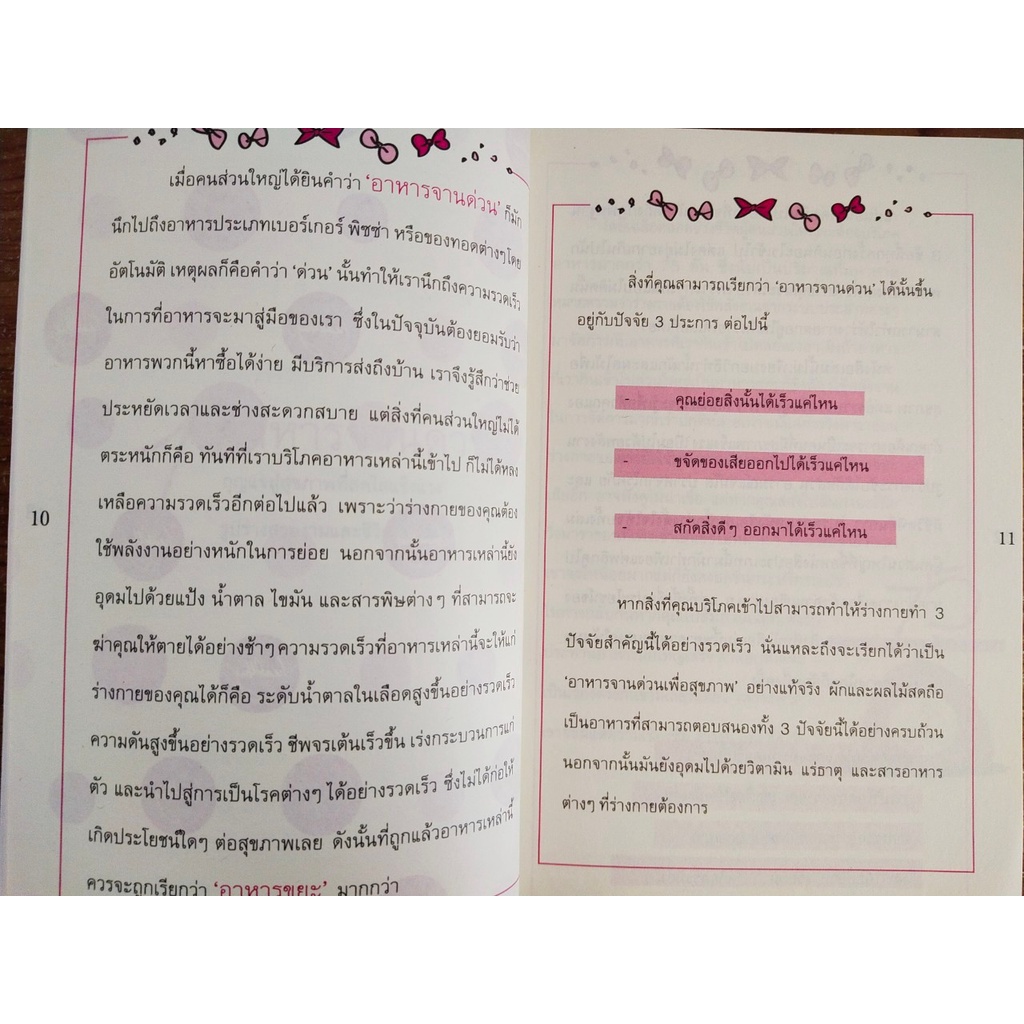 เมื่อคนส่วนใหญ่ได้ยินคำว่า 'อาหารจานด่วน' ก็มัก
นึกไปถึงอาหารประเภทเบอร์เกอร์ พิซซ่า หรือของทอดต่างๆโดย
อัตโนมัติ เหตุผลก็คือคำว่า 'ด่วน' นั้นทำให้เรานึกถึงความรวดเร็ว
ในการที่อาหารจะมาสู่มือของเรา ซึ่งในปัจจุบันต้องยอมรับว่า
อาหารพวกนี้หาซื้อได้ง่าย มีบริการส่งถึงบ้าน เราจึงรู้สึกว่าช่วย
ประหยัดเวลาและช่างสะดวกสบาย แต่สิ่งที่คนส่วนใหญ่ไม่ได้
ตระหนักก็คือ ทันทีที่เราบริโภคอาหารเหล่านี้เข้าไป ก็ไม่ได้หลง
เหลือความรวดเร็วอีกต่อไปแล้ว เพราะว่าร่างกายของคุณต้อง
ใช้พลังงานอย่างหนักในการย่อย นอกจากนั้นอาหารเหล่านี้ยัง
อุดมไปด้วยแป้ง น้ำตาล ไขมัน และสารพิษต่างๆ ที่สามารถจะ
ฆ่าคุณให้ตายได้อย่างช้าๆ ความรวดเร็วที่อาหารเหล่านี้จะให้แก่
ร่างกายของคุณได้ก็คือ ระดับน้ำตาลในเลือดสูงขึ้นอย่างรวดเร็ว
ความดันสูงขึ้นอย่างรวดเร็ว ชีพจรเต้นเร็วขึ้น เร่งกระบวนการแก่
ตัว และนำไปสู่การเป็นโรคต่างๆ ได้อย่างรวดเร็ว ซึ่งไม่ได้ก่อให้
เกิดประโยชน์ใดๆ ต่อสุขภาพเลย ดังนั้นที่ถูกแล้วอาหารเหล่านี้
ควรจะถูกเรียกว่า 'อาหารขยะ' มากกว่า
10
สิ่งที่คุณสามารถเรียกว่า 'อาหารจานด่วน' ได้นั้นขึ้น
อยู่กับปัจจัย 3 ประการ ต่อไปนี้
- คุณย่อยสิ่งนั้นได้เร็วแค่ไหน
- ขจัดของเสียออกไปได้เร็วแค่ไหน
- สกัดสิ่งดีๆ ออกมาได้เร็วแค่ไหน
หากสิ่งที่คุณบริโภคเข้าไปสามารถทำให้ร่างกายทำ 3
ปัจจัยสำคัญนี้ได้อย่างรวดเร็ว นั่นแหละถึงจะเรียกได้ว่าเป็น
'อาหารจานด่วนเพื่อสุขภาพ' อย่างแท้จริง ผักและผลไม้สดถือ
เป็นอาหารที่สามารถตอบสนองทั้ง 3 ปัจจัยนี้ได้อย่างครบถ้วน
นอกจากนั้นมันยังอุดมไปด้วยวิตามิน แร่ธาตุ และสารอาหาร
ต่างๆ ที่ร่างกายต้องการ
11